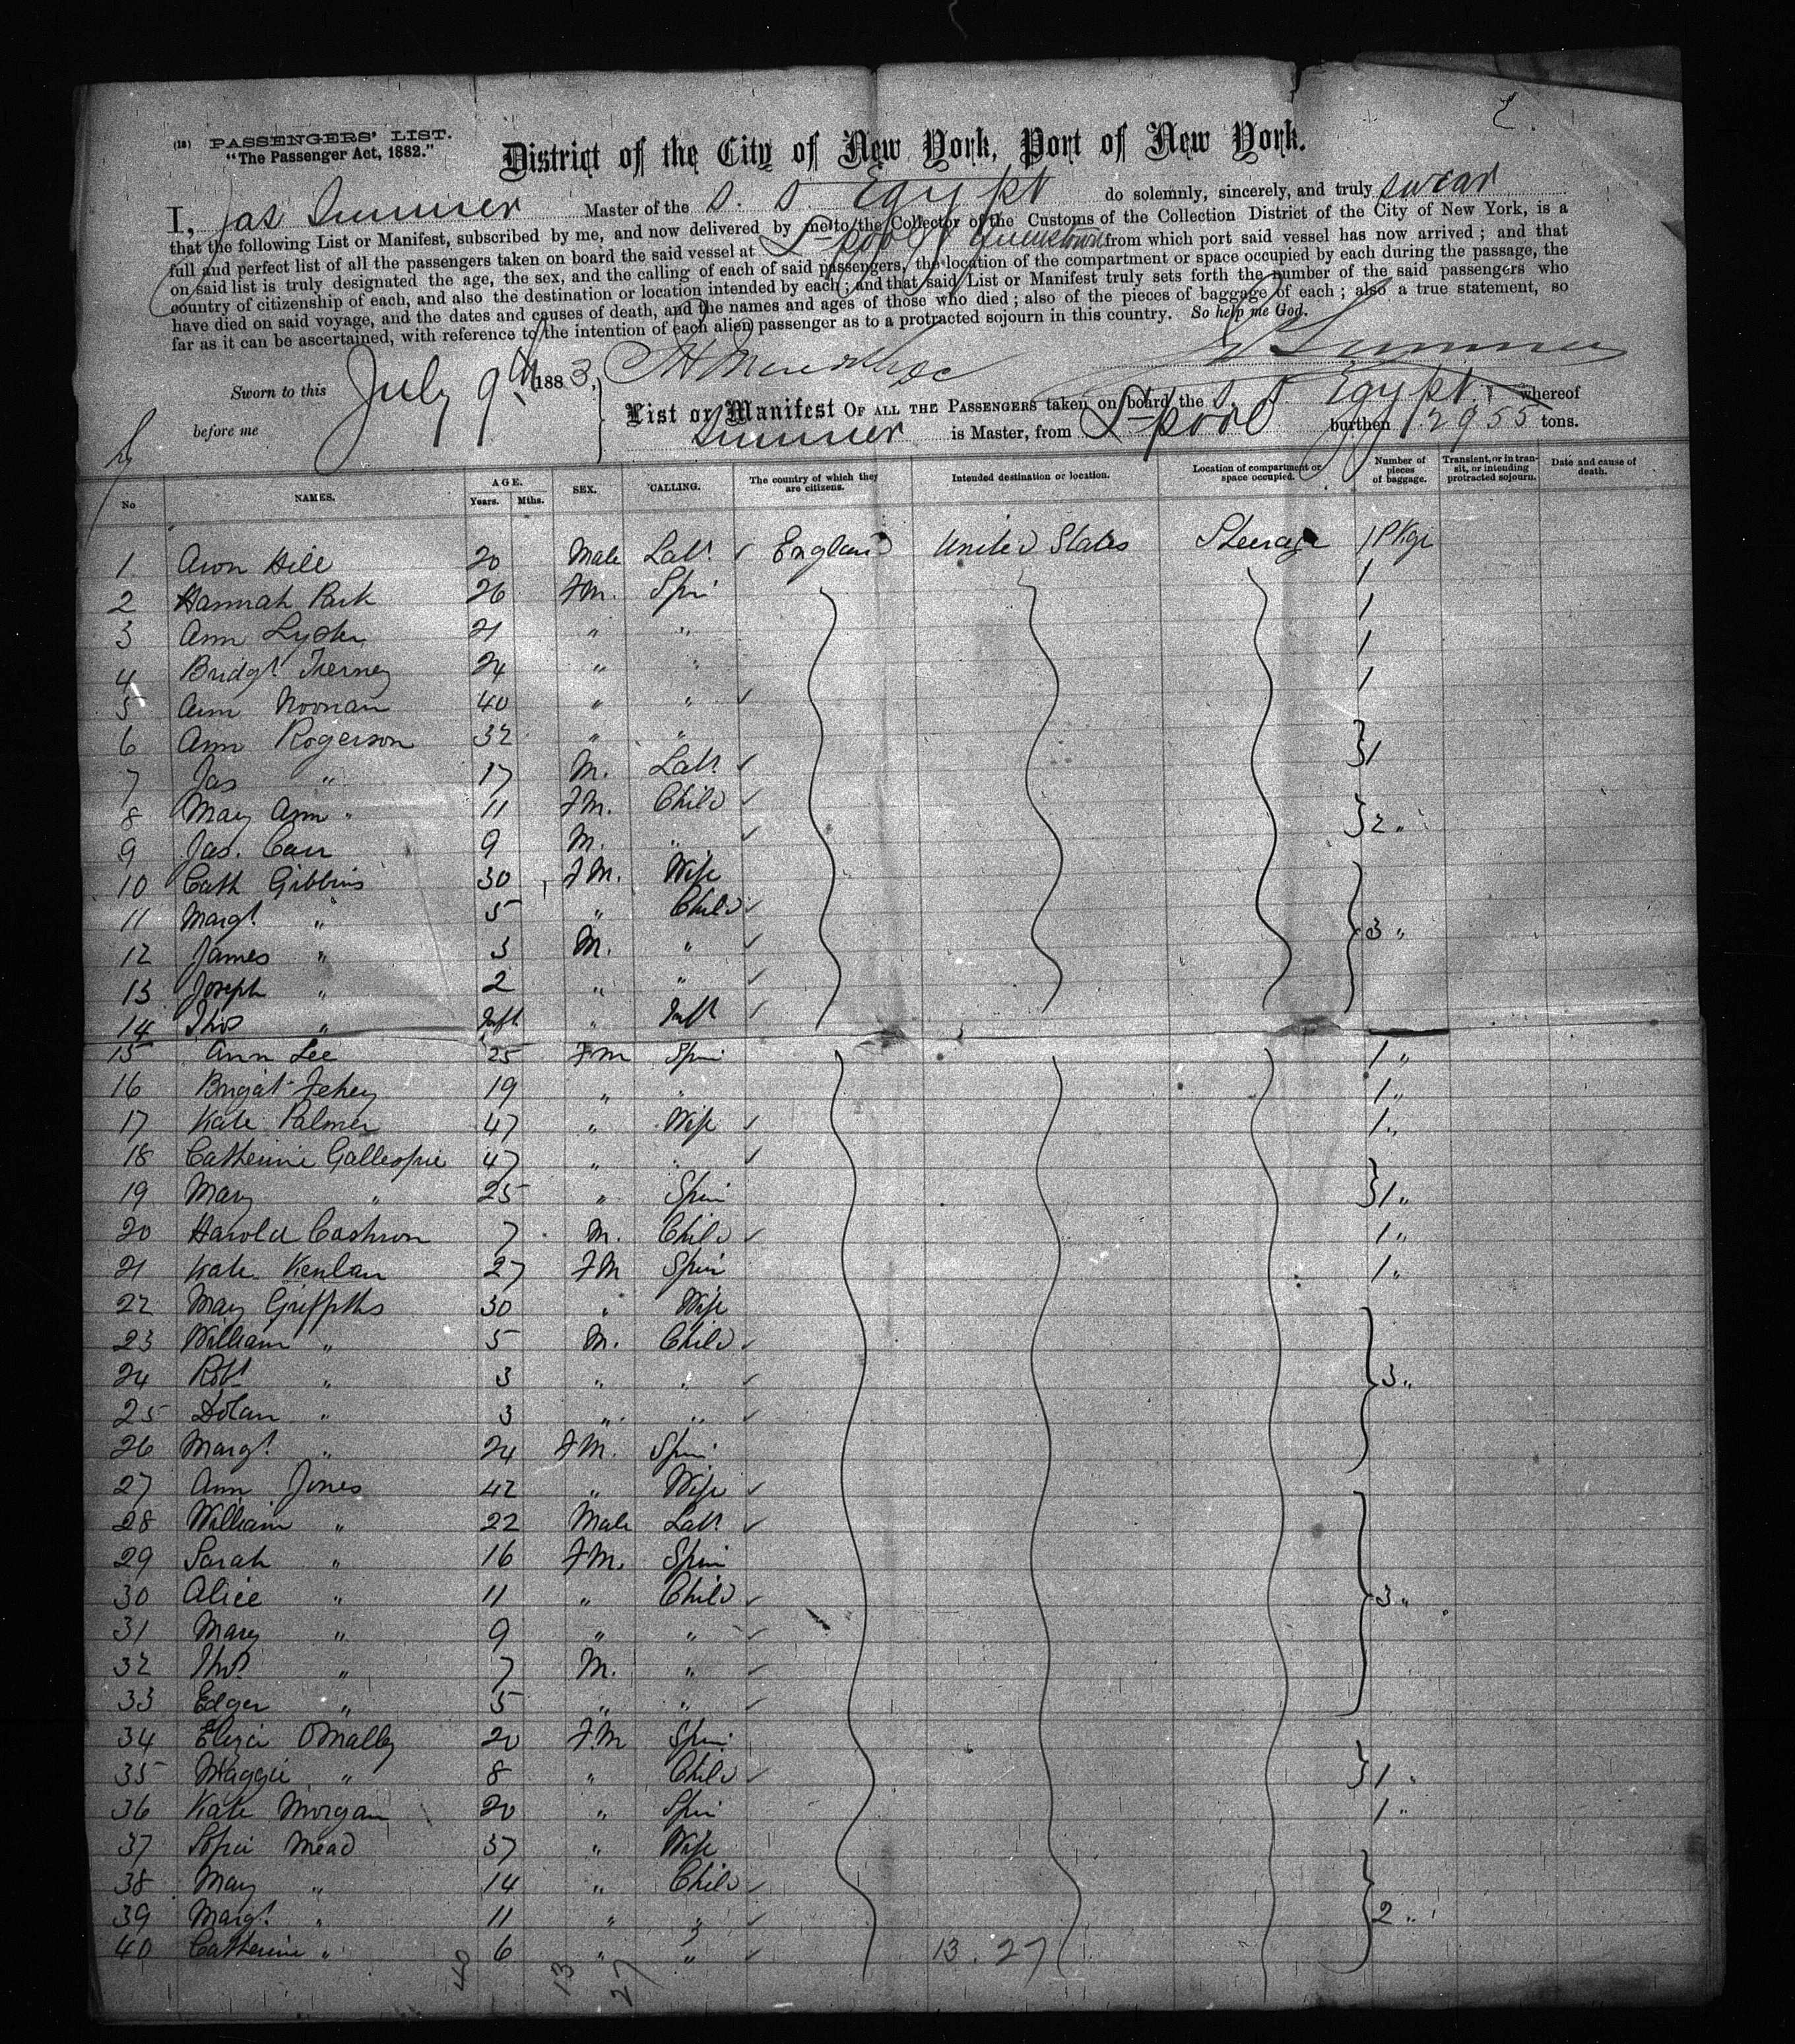 2
(18) PASSENGERS' LIST.
"The Passenger Act, 1882."
District of the City of New York, Port of New York.
I, Jas Summer Master of the S. S. Egypt do solemnly, sincerely, and truly swear
that the following List or Manifest, subscribed by me, and now delivered by me to the Collector of the Customs of the Collection District of the City of New York, is a
full and perfect list of all the passengers taken on board the said vessel at L-pool & Queenstown from which port said vessel has now arrived; and that
on said list is truly designated the age, the sex, and the calling of each of said passengers, the location of the compartment or space occupied by each during the passage, the
country of citizenship of each, and also the destination or location intended by each; and that said List or Manifest truly sets forth the number of the said passengers who
have died on said voyage, and the dates and causes of death, and the names and ages of those who died; also of the pieces of baggage of each; also a true statement, so
far as it can be ascertained, with reference to the intention of each alien passenger as to a protracted sojourn in this country. So help me God.
Sworn to this July 9th 1883,
before me
Summer
List or Manifest OF ALL THE PASSENGERS taken on board the S. S Egypt whereof
Summer is Master, from L-pool burthen 2955 tons.
No NAMES. AGE. Years. Mths. SEX. CALLING. The country of which they are citizens. Intended destination or location. Location of compartment or space occupied. Number of pieces of baggage. Transient, or in transit, or intending protracted sojourn. Date and cause of death.
1 Aron Hill 20 Male Labr England United States Steerage 1 Pkge
2 Hannah Park 26 Fm. Spin 1
3 Ann Lyster 21 " " 1
4 Bridgt Tierney 24 " " 1
5 Ann Noonan 40 " " 1
6 Ann Rogerson 32 " "
7 Jas " 17 M. Labr } 1
8 Mary Ann " 11 Fm. Child
9 Jas. Carr 9 M. " } 2 "
10 Cath Gibbins 30 Fm. Wife
11 Margt " 5 " Child
12 James " 3 M. " } 3 "
13 Joseph " 2 " "
14 Thos " Inft " Inft
15 Ann Lee 25 Fm Spin 1 "
16 Brigat Fehey 19 " " 1 "
17 Kate Palmer 47 " Wife 1 "
18 Catherine Gallespie 47 " "
19 Mary " 25 " Spin } 1 "
20 Harold Cashron 7 M. Child 1 "
21 Kate Kenlan 27 FM Spin 1 "
22 Mary Griffiths 30 " Wife
23 William " 5 M. Child
24 Robt " 3 " " } 3 "
25 Dolan " 3 " "
26 Margt " 24 FM. Spin
27 Ann Jones 42 " Wife
28 William " 22 Male Labr
29 Sarah " 16 FM. Spin
30 Alice " 11 " Child } 3 "
31 Mary " 9 " "
32 Thos " 7 M. "
33 Edger " 5 " "
34 Eliza OMalley 20 F.M Spin
35 Maggie " 8 " Child } 1 "
36 Kate Morgan 20 " Spin 1 "
37 Sofia Mead 37 " Wife
38 May " 14 " Child
39 Margt " 11 " " } 2 "
40 Catherine " 6 " " 13. 27
40 13 27